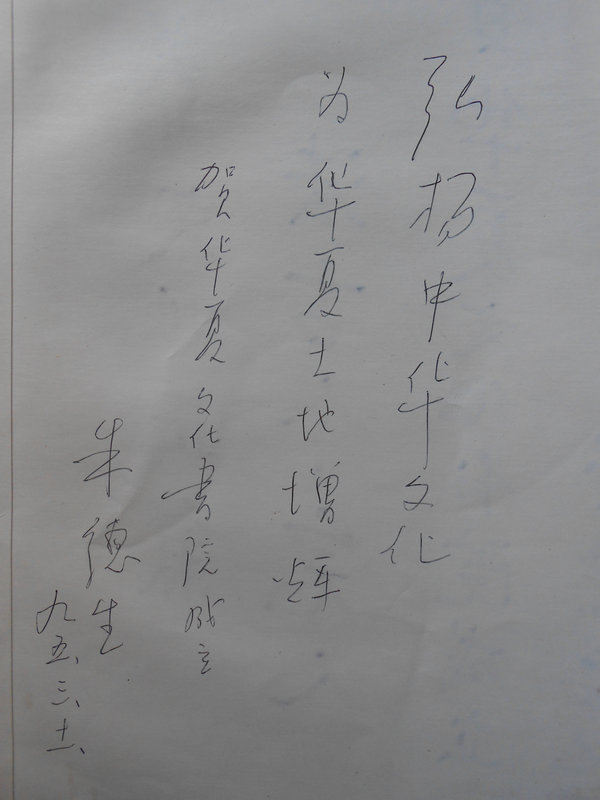 弘扬中华文化
为华夏土地增辉
贺华夏文化书院成立
朱德生
九五、三、十一、